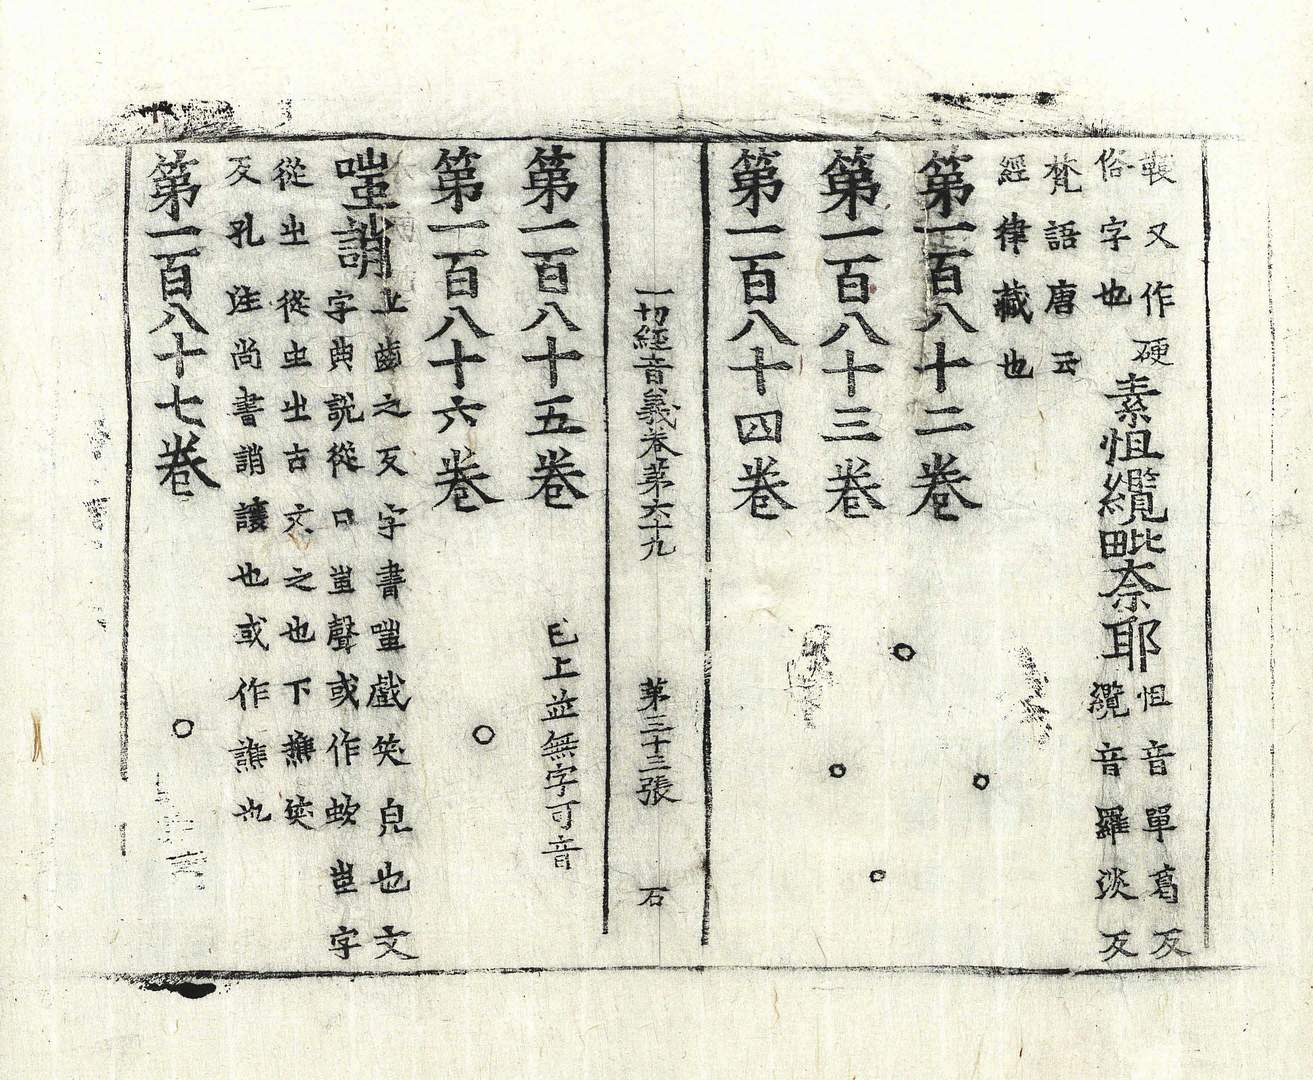 鞕又作硬
俗字也
素怚纜毗奈耶
怚音單葛反
纜音羅淡反
梵語唐云
經律藏也
第一百八十二卷
第一百八十三卷
第一百八十四卷
一切經音義卷第六十九 第三十三張 石
第一百八十五卷 已上並無字可音
第一百八十六卷
嗤誚
上齒之反字書嗤戲笑皃也文
字典說從口蚩聲或作蚩字
從出從虫出古文之也下樵笑
反孔注尚書誚讓也或作譙也
第一百八十七卷